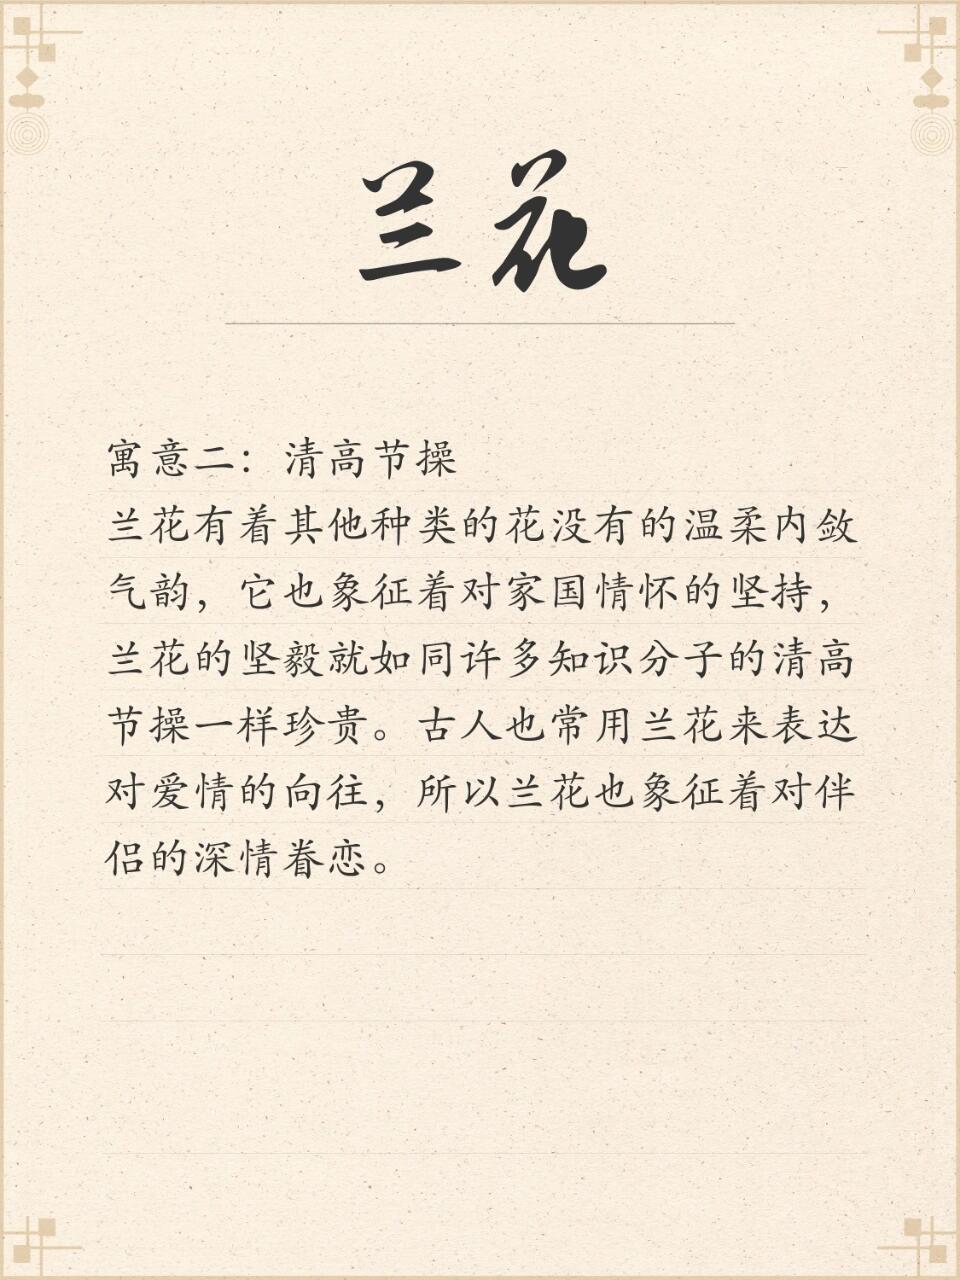 兰花
寓意二：清高节操
兰花有着其他种类的花没有的温柔内敛
气韵，它也象征着对家国情怀的坚持，
兰花的坚毅就如同许多知识分子的清高
节操一样珍贵。古人也常用兰花来表达
对爱情的向往，所以兰花也象征着对伴
侣的深情眷恋。